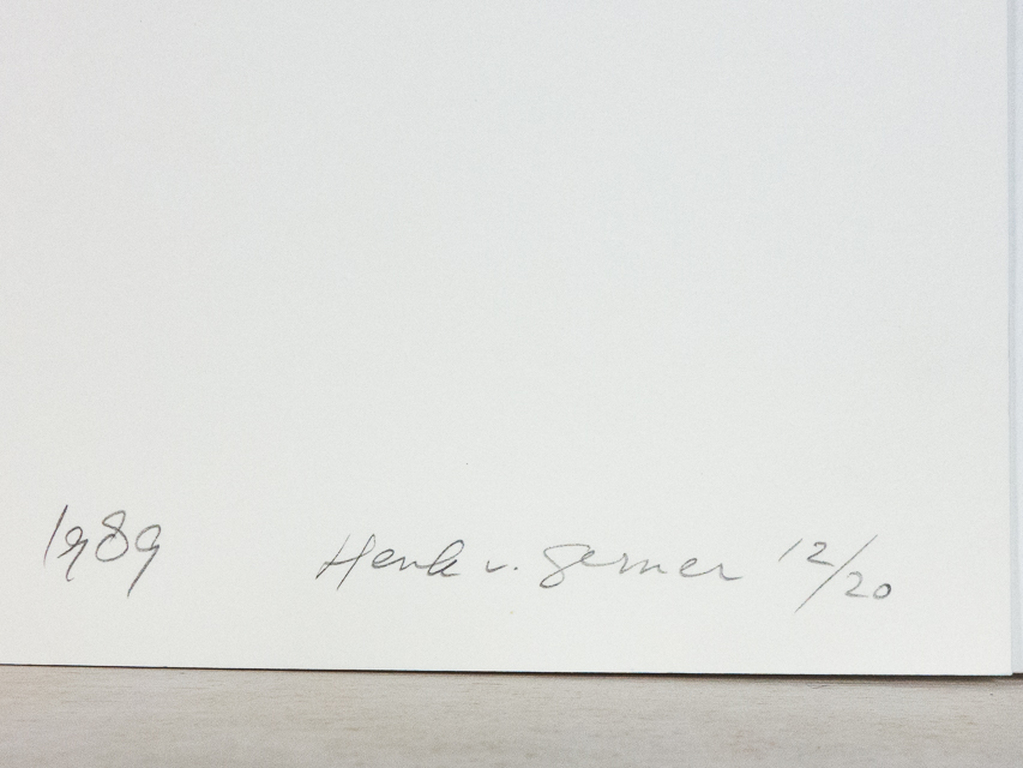 1989 Henk v. Gerner 12/20